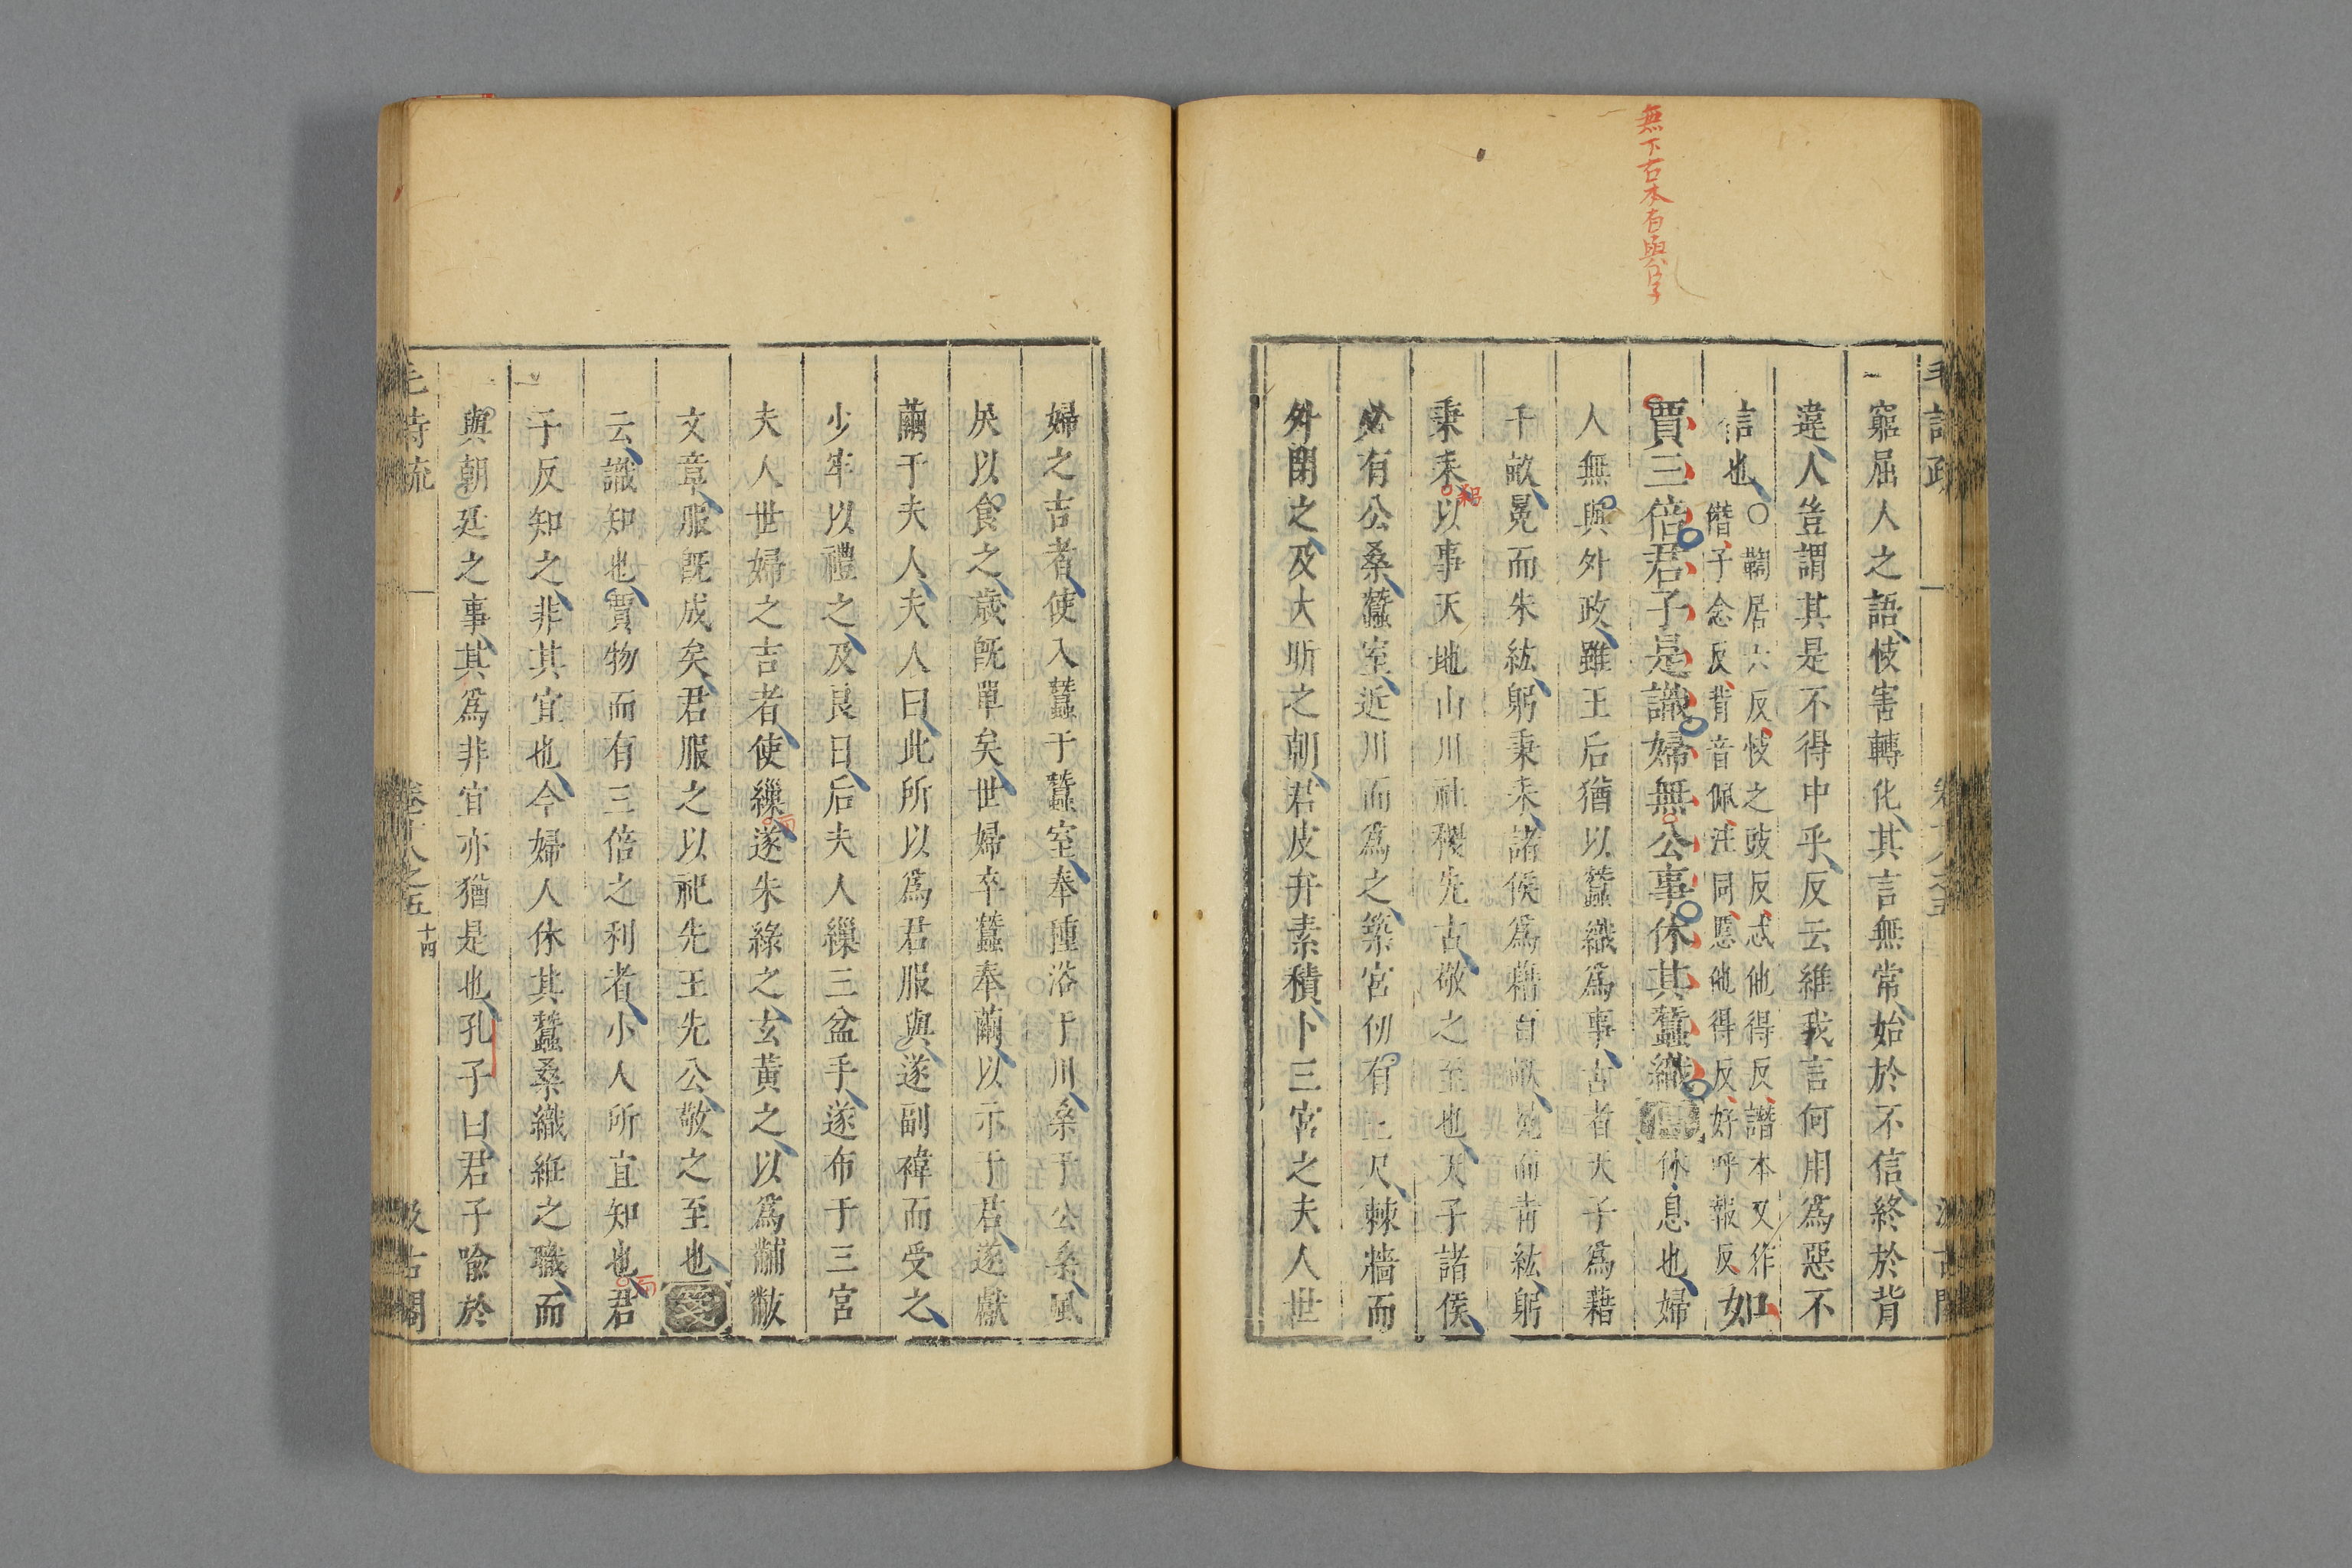 無下古本有與字
窮屈人之語忮害轉化其言無常始於不信終於背
違人豈謂其是不得中乎反云維我言何用爲惡不
信也〇鞫居六反忮之豉反忒他得反譖本又作
僭子念反背音佩注同慝他得反好呼報反如
賈三倍君子是識婦無公事休其蠶織 休息也婦
人無與外政雖王后猶以蠶織爲事古者天子爲藉
千畝冕而朱紘躬秉耒諸侯爲藉百畝冕而青紘躬
秉耒以事天地山川社稷先古敬之至也天子諸侯
必有公桑蠶室近川而爲之築宮仞有三尺棘牆而
外閉之及大昕之朝君皮弁素積卜三宮之夫人世
婦之吉者使入蠶于蠶室奉種浴于川桑于公桑風
戾以食之歲旣單矣世婦卒蠶奉繭以示于君遂獻
繭于夫人夫人曰此所以爲君服與遂副褘而受之
少牢以禮之及良日后夫人繅三盆手遂布于三宮
夫人世婦之吉者使繅遂朱綠之玄黃之以爲黼黻
文章服旣成矣君服之以祀先王先公敬之至也箋
云識知也賈物而有三倍之利者小人所宜知也君
子反知之非其宜也今婦人休其蠶桑織紝之職而
與朝廷之事其爲非宜亦猶是也孔子曰君子喻於
毛詩疏 卷十八之五 十四 汲古閣